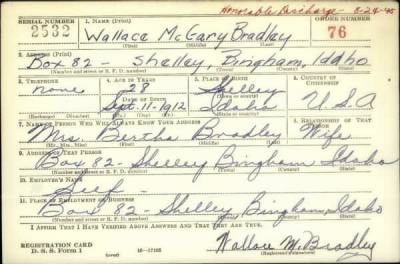 Honorable Discharge - 8-24-45
SERIAL NUMBER 1. NAME (Print) ORDER NUMBER
2532 Wallace McGary Bradley 76
(First) (Middle) (Last)
2. ADDRESS (Print)
Box 82 - Shelley, Bingham, Idaho
(Number and street or R. F. D. number) (Town) (County) (State)
3. TELEPHONE 4. AGE IN YEARS 5. PLACE OF BIRTH 6. COUNTRY OF CITIZENSHIP
none 28 Shelley
DATE OF BIRTH (Town or county)
Sept. 11-1912 Idaho U.S.A
(Exchange) (Number) (Mo.) (Day) (Yr.) (State or country)
7. NAME OF PERSON WHO WILL ALWAYS KNOW YOUR ADDRESS 8. RELATIONSHIP OF THAT PERSON
Mrs. Bertha Bradley Wife
(Mr., Mrs., Miss) (First) (Middle) (Last)
9. ADDRESS OF THAT PERSON
Box 82 - Shelley Bingham Idaho
(Number and street or R. F. D. number) (Town) (County) (State)
10. EMPLOYER'S NAME
Self -
11. PLACE OF EMPLOYMENT OR BUSINESS
Box 82 - Shelley, Bingham, Idaho
(Number and street or R. F. D. number) (Town) (County) (State)
I AFFIRM THAT I HAVE VERIFIED ABOVE ANSWERS AND THAT THEY ARE TRUE.
REGISTRATION CARD
D. S. S. FORM 1 (over) 16-17105
Wallace M. Bradley
(Registrant's signature)